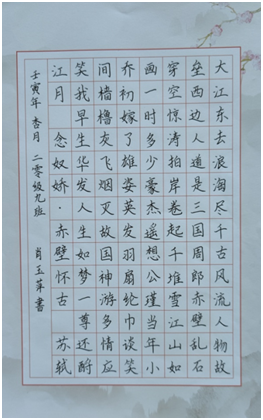 大江东去浪淘尽千古风流人物故
垒西边人道是三国周郎赤壁乱石
穿空惊涛拍岸卷起千堆雪江山如
画一时多少豪杰遥想公瑾当年小
乔初嫁了雄姿英发羽扇纶巾谈笑
间樯橹灰飞烟灭故国神游多情应
笑我早生华发人生如梦一尊还酹
江月 念奴娇·赤壁怀古 苏轼
壬寅年 杏月 二零级九班 肖玉 書